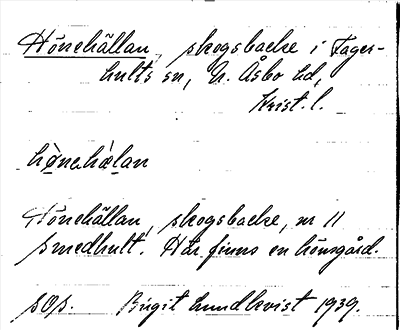 Hönehällan, skogsbacke i Fager-
hults sn, N. Åsbo hd,
Krist. l.
hönehälan
Hönehällan, skogsbacke, nr 11
Smedhult. Här finns en hönsgård.
Birgit Lundkvist 1939.